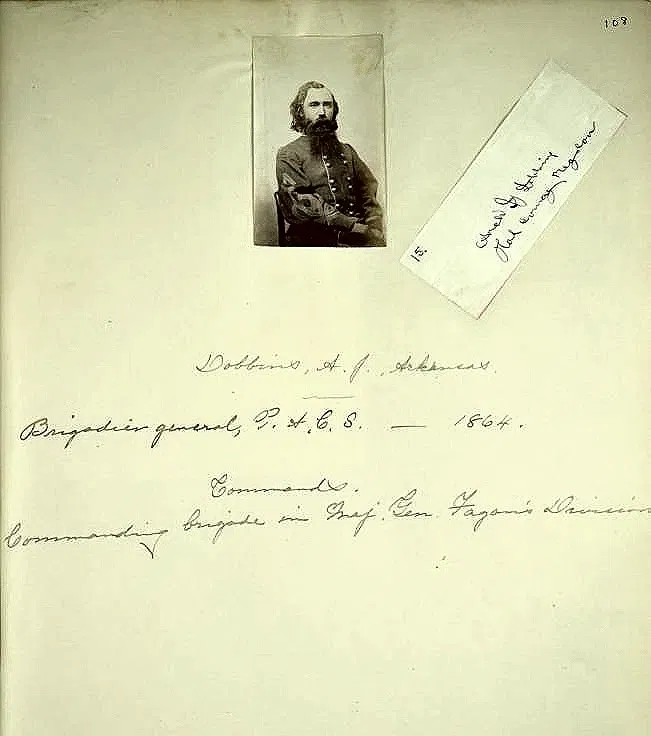 108
15.
Arch J Dobbins
Dobbins, A. J., Arkansas.
Brigadier general, P. A. C. S. — 1864.
Commands.
Commanding brigade in Maj. Gen. Fagan's Division